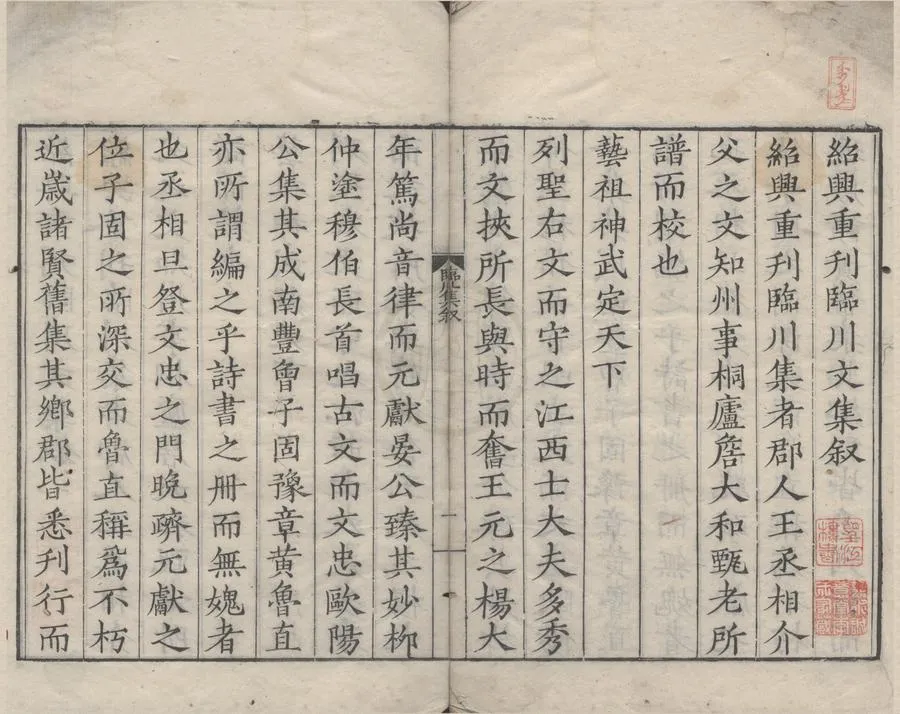 紹興重刊臨川文集叙
紹興重刊臨川集者郡人王丞相介
父之文知州事桐廬詹大和甄老所
譜而校也
藝祖神武定天下
列聖右文而守之江西士大夫多秀
而文挾所長與時而奮王元之楊大
臨川集叙
一
年篤尚音律而元獻晏公臻其妙柳
仲塗穆伯長首唱古文而文忠歐陽
公集其成南豐曾子固豫章黃魯直
亦所謂編之乎詩書之冊而無媿者
也丞相旦登文忠之門晚躋元獻之
位子固之所深交而魯直稱爲不朽
近歲諸賢舊集其鄉郡皆悉刊行而